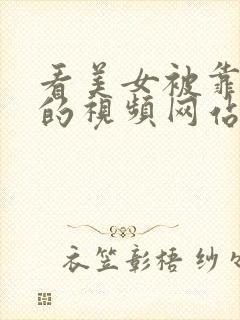 看美女被靠
的視頻网佔
衣笠彰梧 纱々